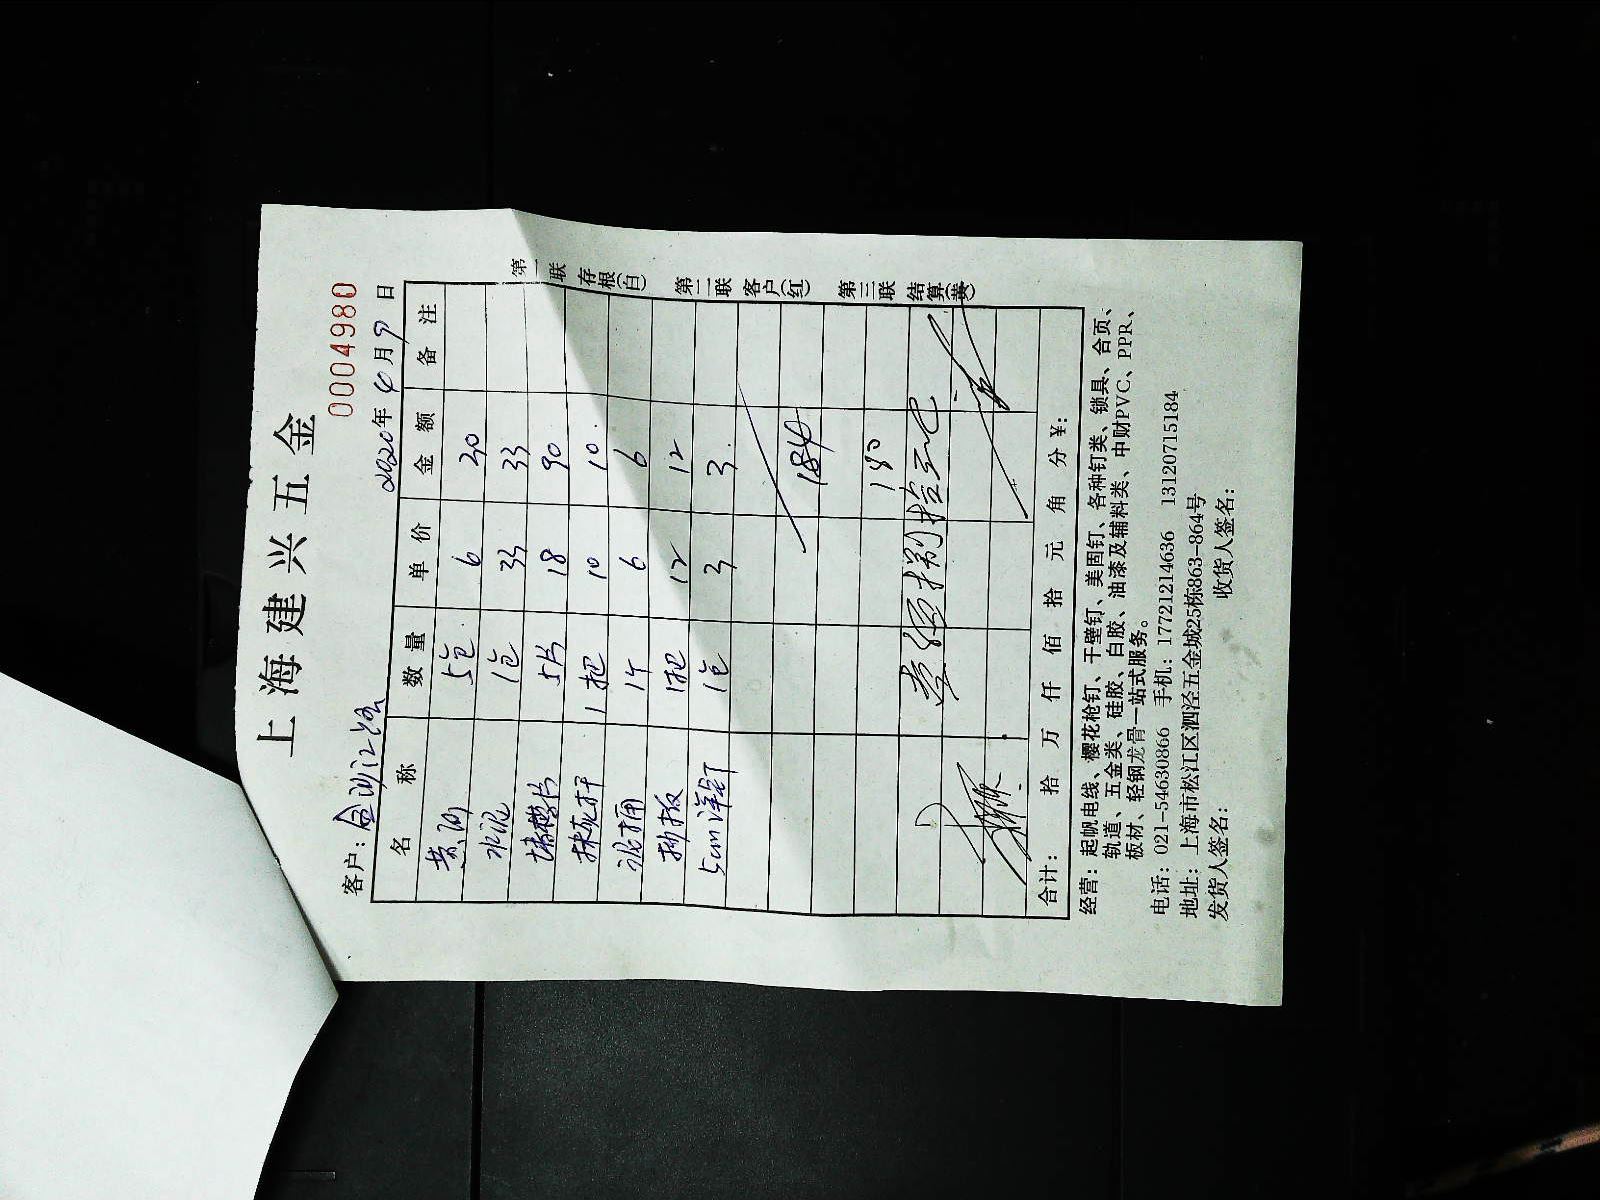 上海建兴五金
0004980
客户：金沙江路 2020年4月9日
名称 数量 单价 金额 备注
黄沙 5包 6 30
水泥 1包 33 33
5片 18 90
1把 10 10
1个 6 6
1把 12 12
5cm洋钉 1包 3 3
184
180
壹佰捌拾元
合计： 拾 万 仟 佰 拾 元 角 分 ¥:
第一联 存根(白) 第二联 客户(红) 第三联 结算(黄)
经营：起帆电线、樱花枪钉、干壁钉、美固钉、各种钉类、锁具、合页、
轨道、五金类、硅胶、白胶、油漆及辅料类、中财PVC、PPR、
板材、轻钢龙骨一站式服务。
电话：021-54630866 手机：17721214636 13120715184
地址：上海市松江区泗泾五金城25栋863-864号
发货人签名： 收货人签名：